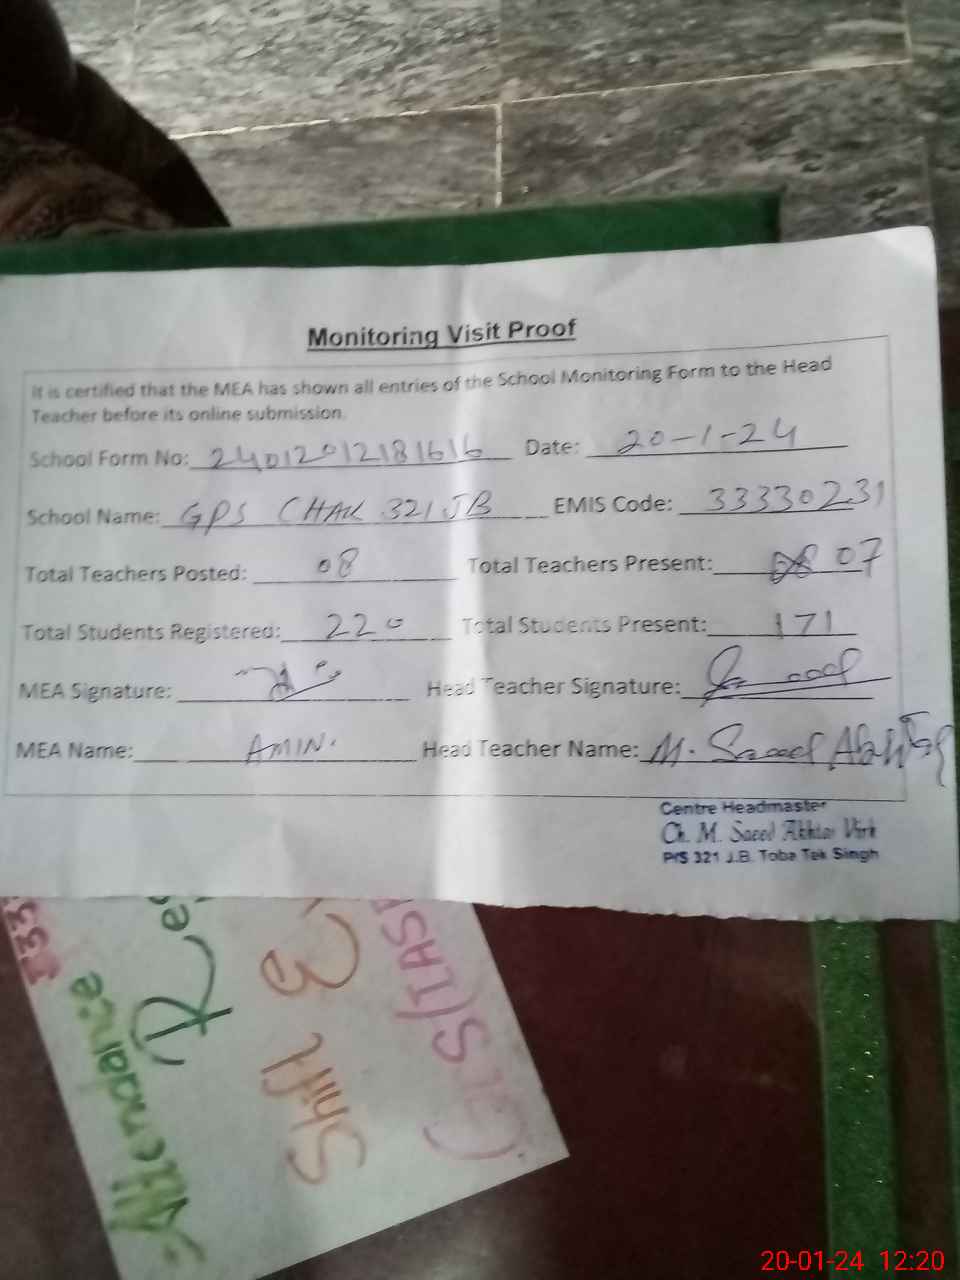 Monitoring Visit Proof
It is certified that the MEA has shown all entries of the School Monitoring Form to the Head
Teacher before its online submission.
School Form No: 24012012181616 Date: 20-1-24
School Name: GPS CHAK 321 JB EMIS Code: 33330231
Total Teachers Posted: 08 Total Teachers Present: 07
Total Students Registered: 220 Total Students Present: 171
MEA Signature: Head Teacher Signature:
MEA Name: AMIN. Head Teacher Name: M. Saeed Akhtar
Centre Headmaster
Ch. M. Saeed Akhtar Virk
P/S 321 J.B. Toba Tek Singh
Attendance
Shift
20-01-24 12:20